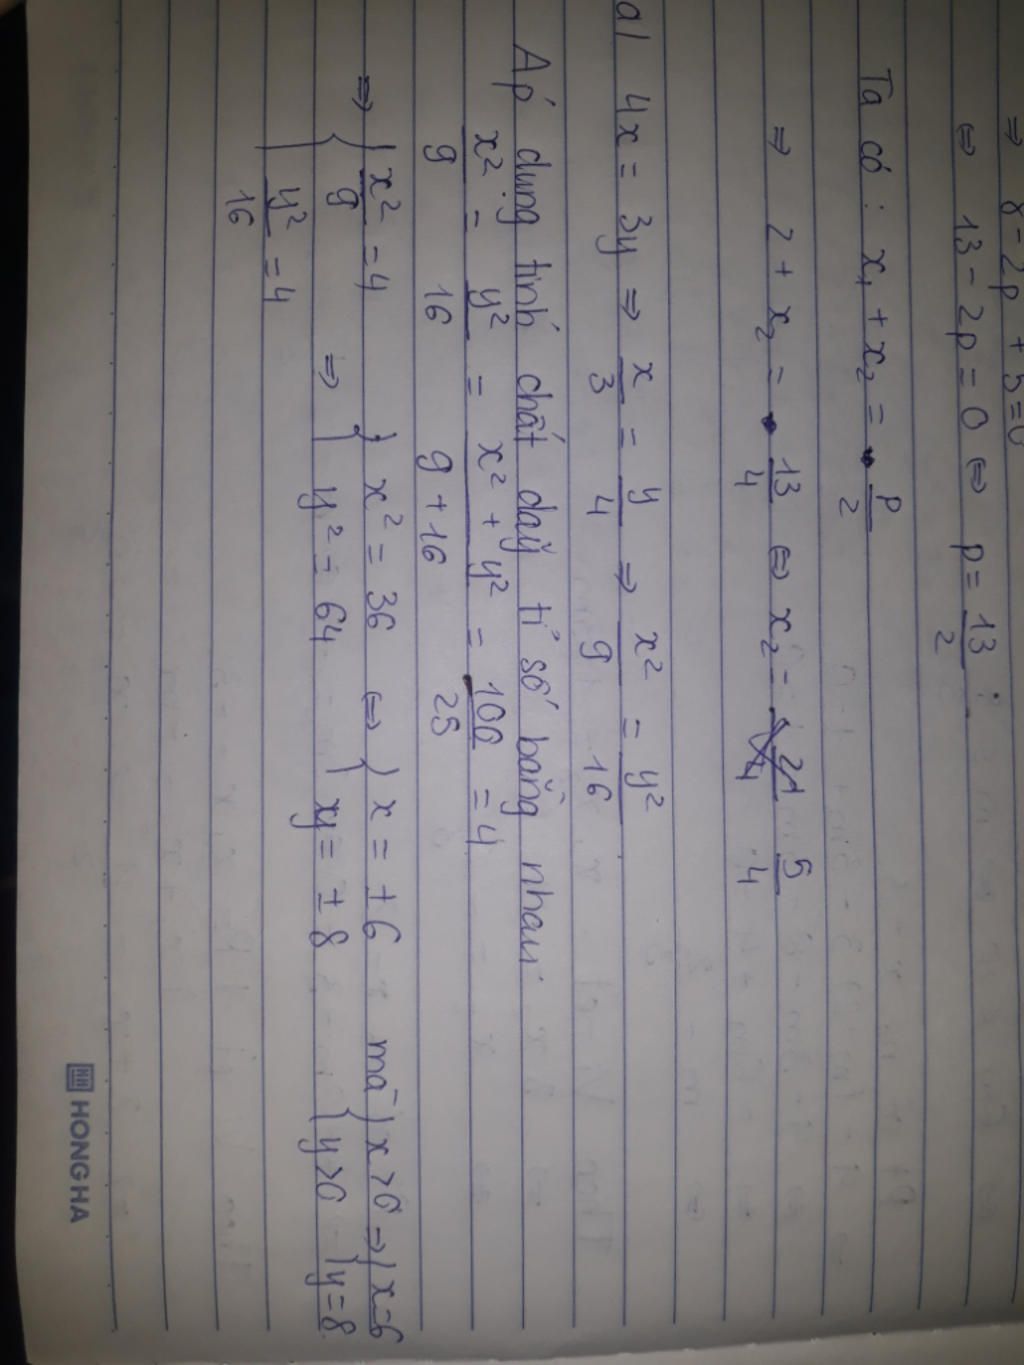 ⇒ 8 - 2p + 5 = 0
⇔ 13 - 2p = 0 ⇔ p = 13/2
Ta có : x₁ + x₂ = p/2
⇒ 2 + x₂ = 13/4 ⇔ x₂ = 5/4
a/ 4x = 3y ⇒ x/3 = y/4 ⇒ x²/9 = y²/16
Áp dụng tính chất dãy tỉ số bằng nhau
x²/9 = y²/16 = x² + y²/9 + 16 = 100/25 = 4
⇒ { x²/9 = 4 ⇒ { x² = 36 ⇔ { x = ± 6 mà { x > 0 ⇒ { x = 6
y²/16 = 4 y² = 64 xy = ± 8 y > 0 y = 8
HONG HA